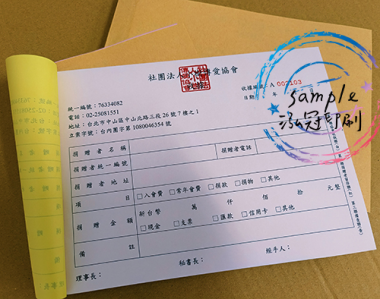 社團法人 愛協會
統一編號：76334082
電話：02-25081551
地址：台北市中山區中山北路三段26號7樓之1
立案字號：台內團字第1080046354號
收據編號：A 007103
日期：
sample
泓冠印刷
捐贈者名稱
捐贈者統一編號 捐贈者電話
捐贈者地址
項目 □入會費 □常年會費 □捐款 □捐物 □其他
捐贈金額 新台幣 萬 仟 佰 拾 元整
□現金 □支票 □匯款 □信用卡 □其他
備註
理事長： 秘書長： 經手人：